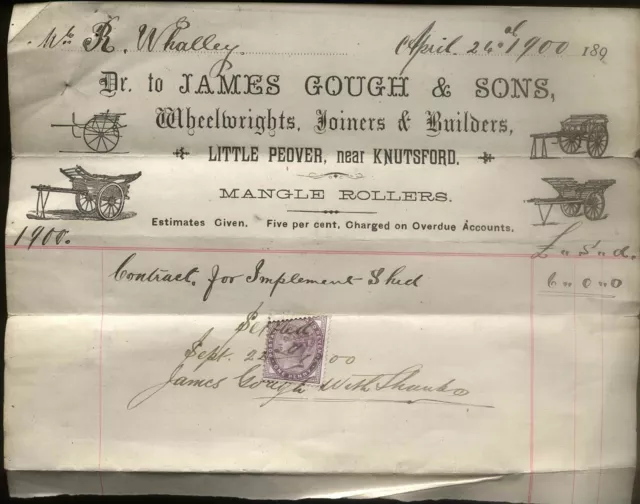 Mr R. Whalley. April 24th 1900 189
Dr. to JAMES GOUGH & SONS,
Wheelwrights, Joiners & Builders,
LITTLE PEOVER, near KNUTSFORD.
MANGLE ROLLERS.
Estimates Given. Five per cent. Charged on Overdue Accounts.
1900. £ " s " d.
Contract. for Implement Shed 6 " 0 " 0
Settled
Sept. 22 00
James Gough With Thanks